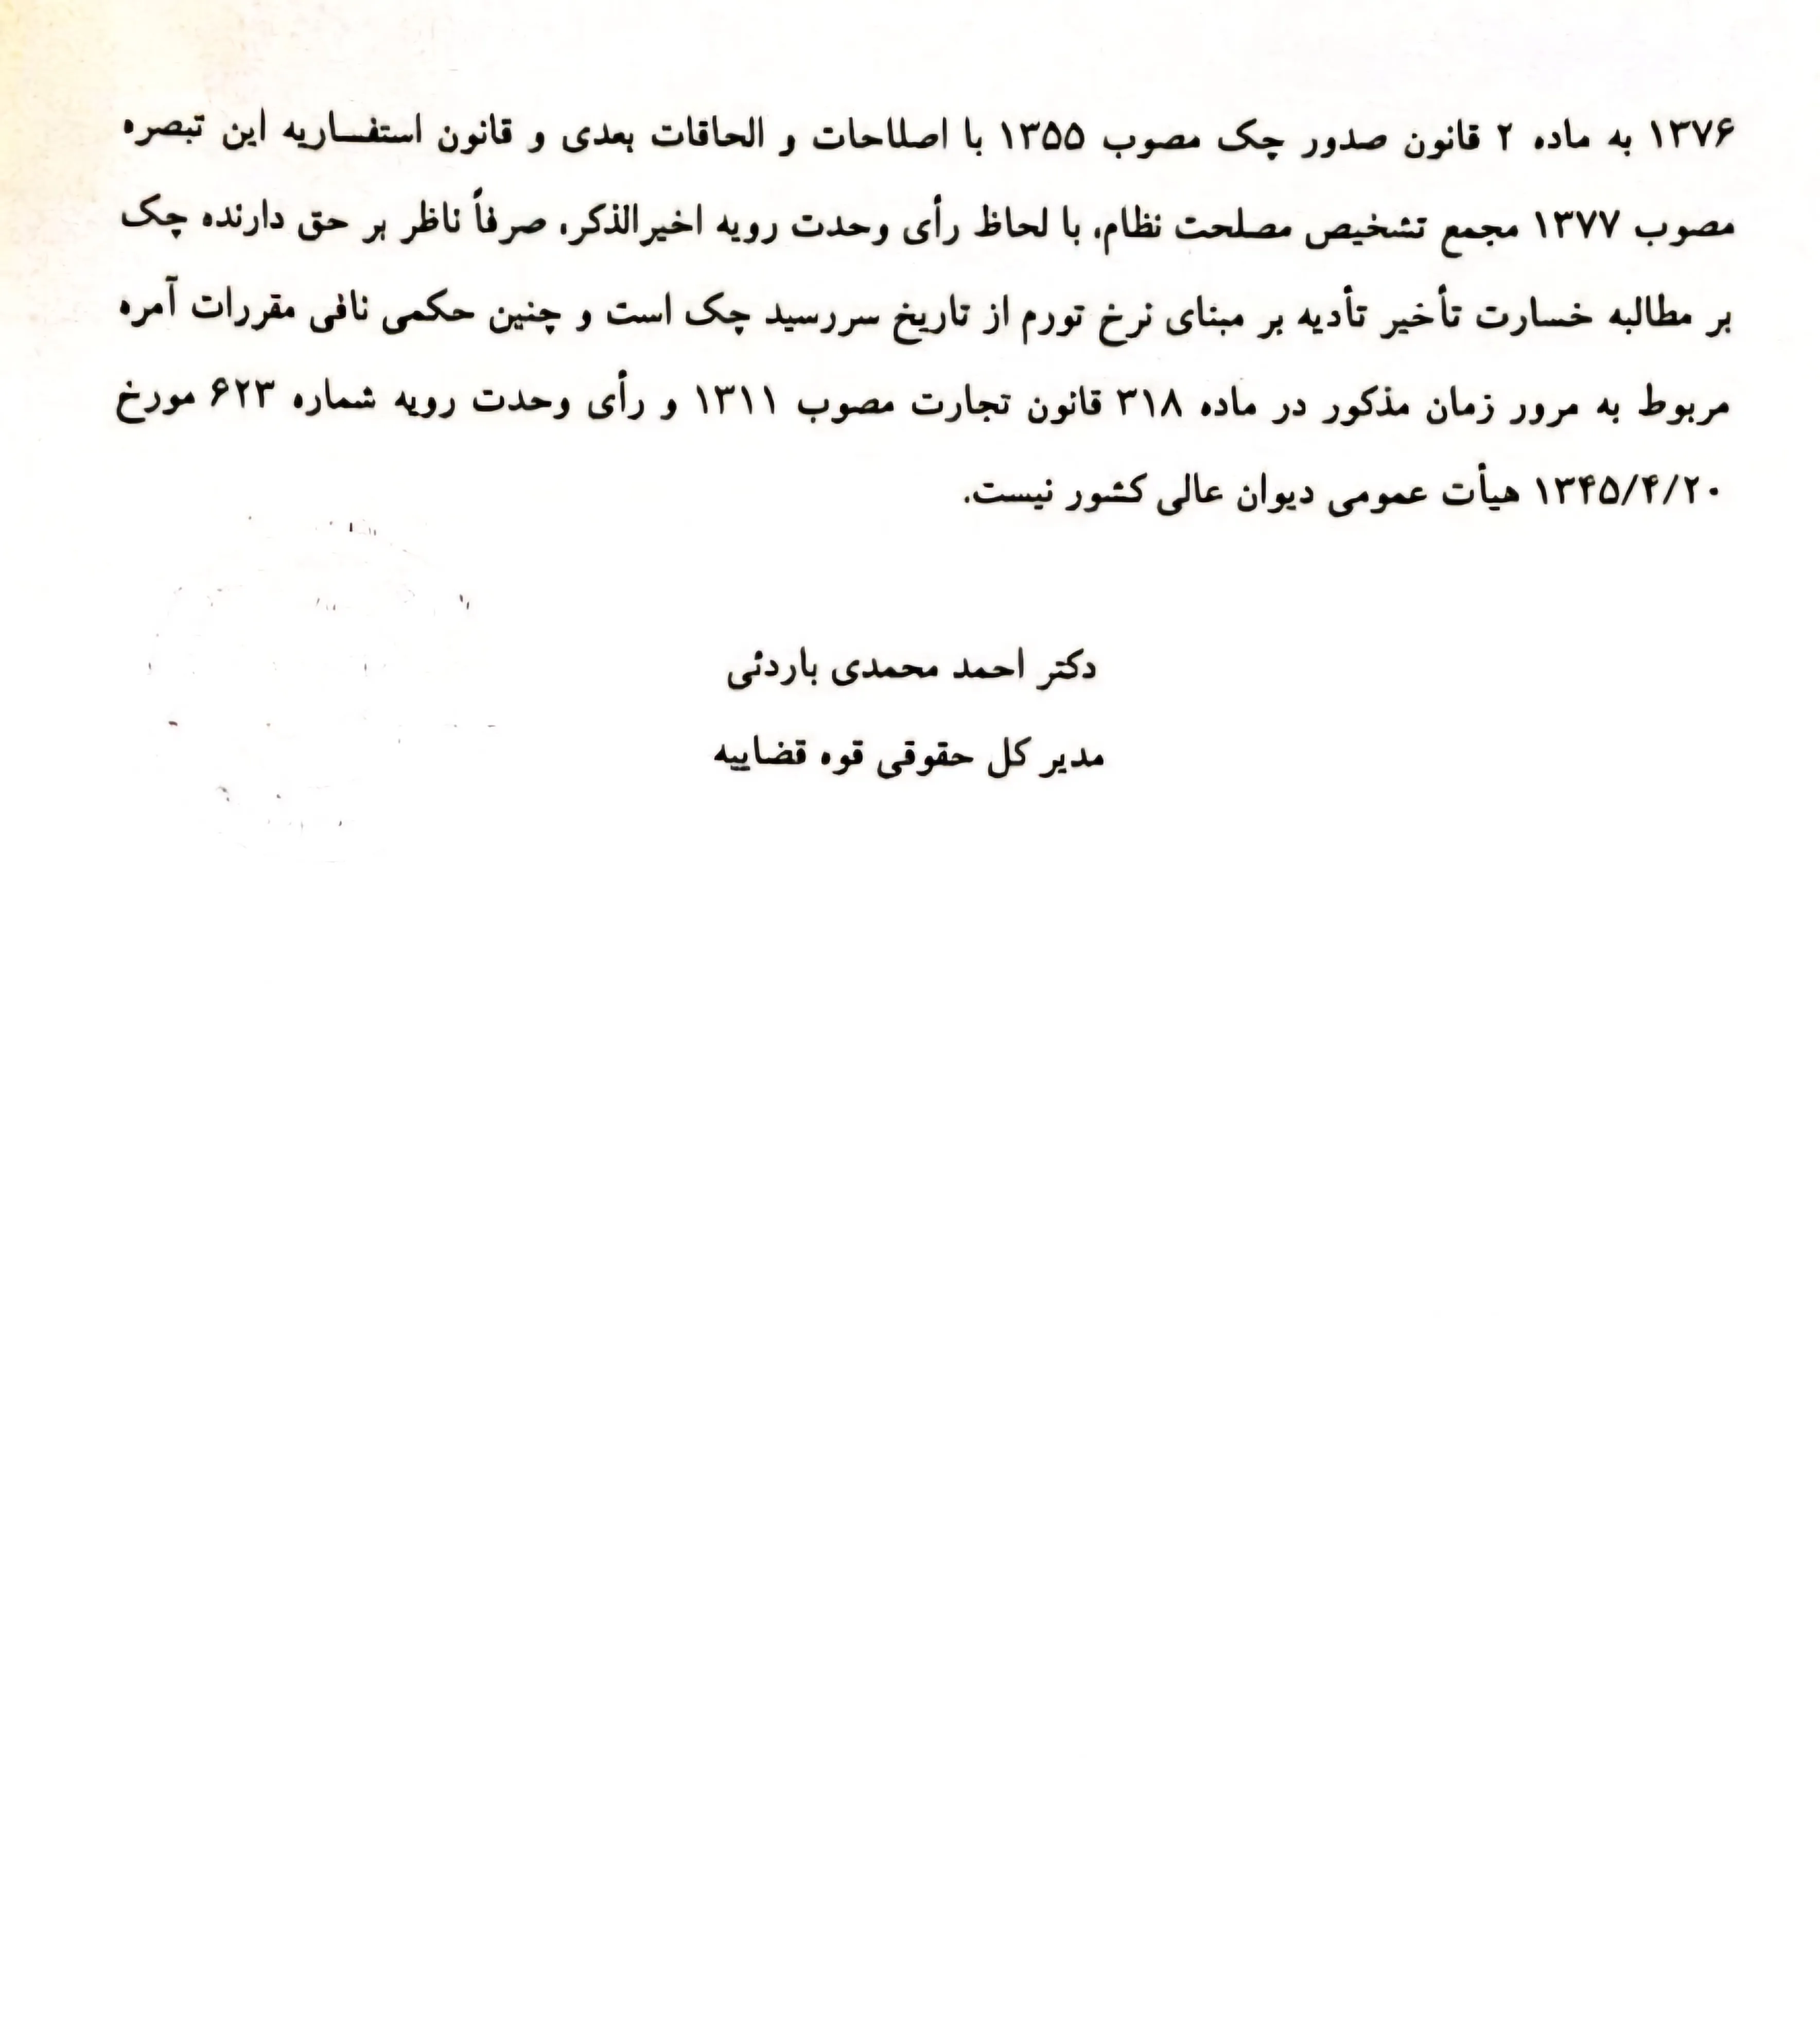 ۱۳۷۶ به ماده ۲ قانون صدور چک مصوب ۱۳۵۵ با اصلاحات و الحاقات بعدی و قانون استفساریه این تبصره
مصوب ۱۳۷۷ مجمع تشخیص مصلحت نظام، با لحاظ رأی وحدت رویه اخیرالذکر، صرفاً ناظر بر حق دارنده چک
بر مطالبه خسارت تأخیر تأدیه بر مبنای نرخ تورم از تاریخ سررسید چک است و چنین حکمی نافی مقررات آمره
مربوط به مرور زمان مذکور در ماده ۳۱۸ قانون تجارت مصوب ۱۳۱۱ و رأی وحدت رویه شماره ۶۲۳ مورخ
۱۳۴۵/۴/۲۰ هیأت عمومی دیوان عالی کشور نیست.
دکتر احمد محمدی باردئی
مدیر کل حقوقی قوه قضاییه